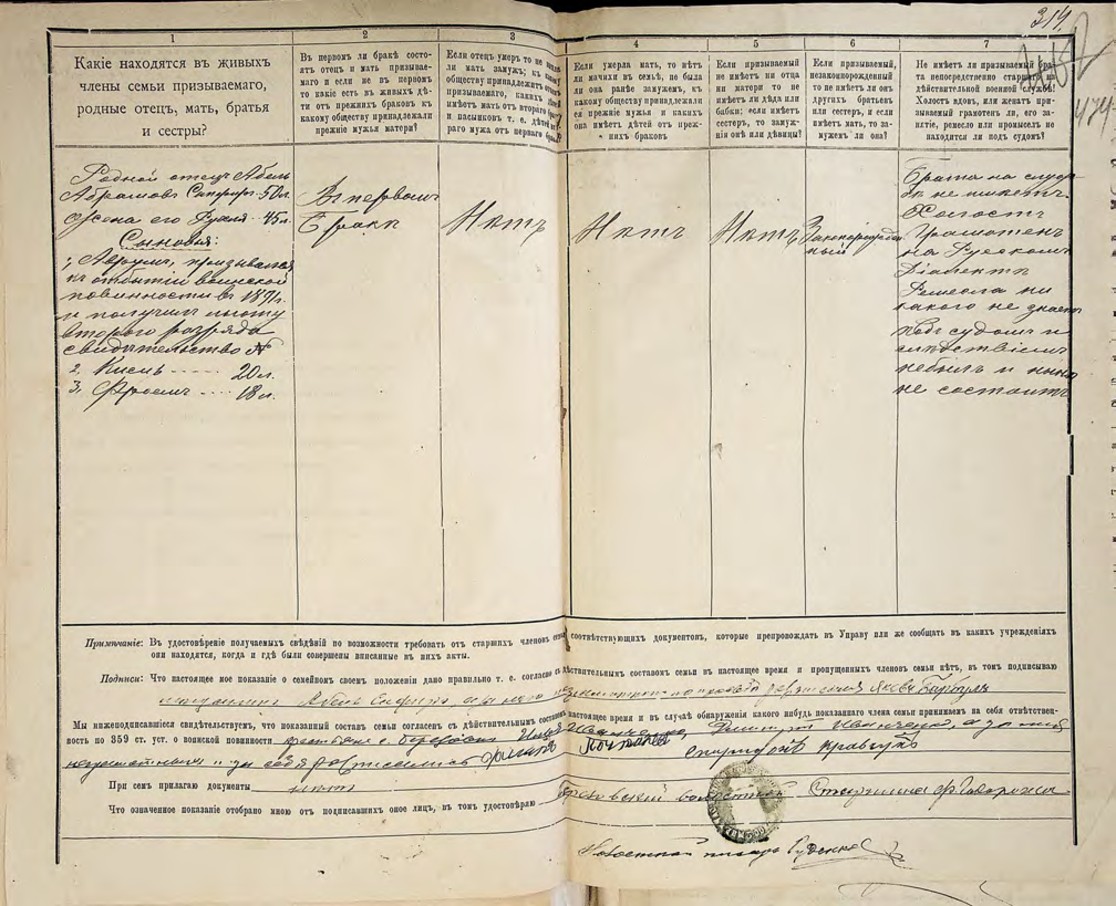 314
1
2
3
4
5
6
7
Какіе находятся въ живыхъ
члены семьи призываемаго,
родные отецъ, мать, братья
и сестры?
Въ первомъ ли бракѣ состо-
ятъ отецъ и мать призывае-
маго и если не въ первомъ
то какіе есть въ живыхъ дѣ-
ти отъ прежнихъ браковъ къ
какому обществу принадлежали
прежніе мужья матери?
Если отецъ умеръ то не
ли мать замужъ; къ какому
обществу принадлежитъ отчимъ
призываемаго, какихъ дѣтей
имѣетъ мать отъ втораго
и пасынковъ т. е. дѣтей
раго мужа отъ перваго
Если умерла мать, то нѣтъ
ли мачихи въ семьѣ, не была
ли она ранѣе замужемъ, къ
какому обществу принадлежали
ея прежніе мужья и какихъ
она имѣетъ дѣтей отъ преж-
нихъ браковъ
Если призываемый
не имѣетъ ни отца
ни матери то не
имѣетъ ли дѣда или
бабки; если имѣетъ
сестеръ, то замуж-
нія онѣ или дѣвицы?
Если призываемый,
незаконорожденный
то не имѣетъ ли онъ
другихъ братьевъ
или сестеръ, и если
имѣетъ мать, то за-
мужемъ ли она?
Не имѣетъ ли призываемый бра-
та непосредственно старшаго на
дѣйствительной военной службѣ?
Холостъ вдовъ, или женатъ при-
зываемый грамотенъ ли, его за-
нятіе, ремесло или промыселъ не
находится ли подъ судомъ?
Родной отецъ Абель
Абрамовъ 50 л.
Жена его 45 л.
Сыновья:
1, Аврумъ, призывался
къ отбытію воинской
повинности въ 1891 г.
и получилъ льготу
втораго разряда
свидѣтельство №
2, Кисель ----- 20 л.
3, Фроемъ ---- 18 л.
Въ первомъ
бракѣ
Нѣтъ
Нѣтъ
Нѣтъ
Законорожден
ный
Брата на служ-
бѣ не имѣетъ.
Холостъ
Грамотенъ
на Русскомъ
Діалектѣ
Ремесла ни
какого не знаетъ
подъ судомъ и
слѣдствіемъ
небылъ и нынѣ
не состоитъ
Примѣчаніе: Въ удостовѣреніе получаемыхъ свѣдѣній по возможности требовать отъ старшихъ членовъ соотвѣтствующихъ документовъ, которые препровождать въ Управу или же сообщать въ какихъ учрежденіяхъ
они находятся, когда и гдѣ были совершены вписанные въ нихъ акты.
Подписи: Что настоящее мое показаніе о семейномъ своемъ положеніи дано правильно т. е. согласно съ дѣйствительнымъ составомъ семьи въ настоящее время и пропущенныхъ членовъ семьи нѣтъ, въ томъ подписываю
Абель
Мы нижеподписавшіеся свидѣтельствуемъ, что показанный составъ семьи согласенъ съ дѣйствительнымъ составомъ настоящее время и въ случаѣ обнаруженія какого нибудь показаннаго члена семьи принимаемъ на себя отвѣтствен-
ность по 359 ст. уст. о воинской повинности крестьяне с. Иванченко, а за
правуго
При семъ прилагаю документы нѣтъ
Что означенное показаніе отобрано мною отъ подписавшихъ оное лицъ, въ томъ удостовѣряю волостной Старшина
Волостной писарь Руденко